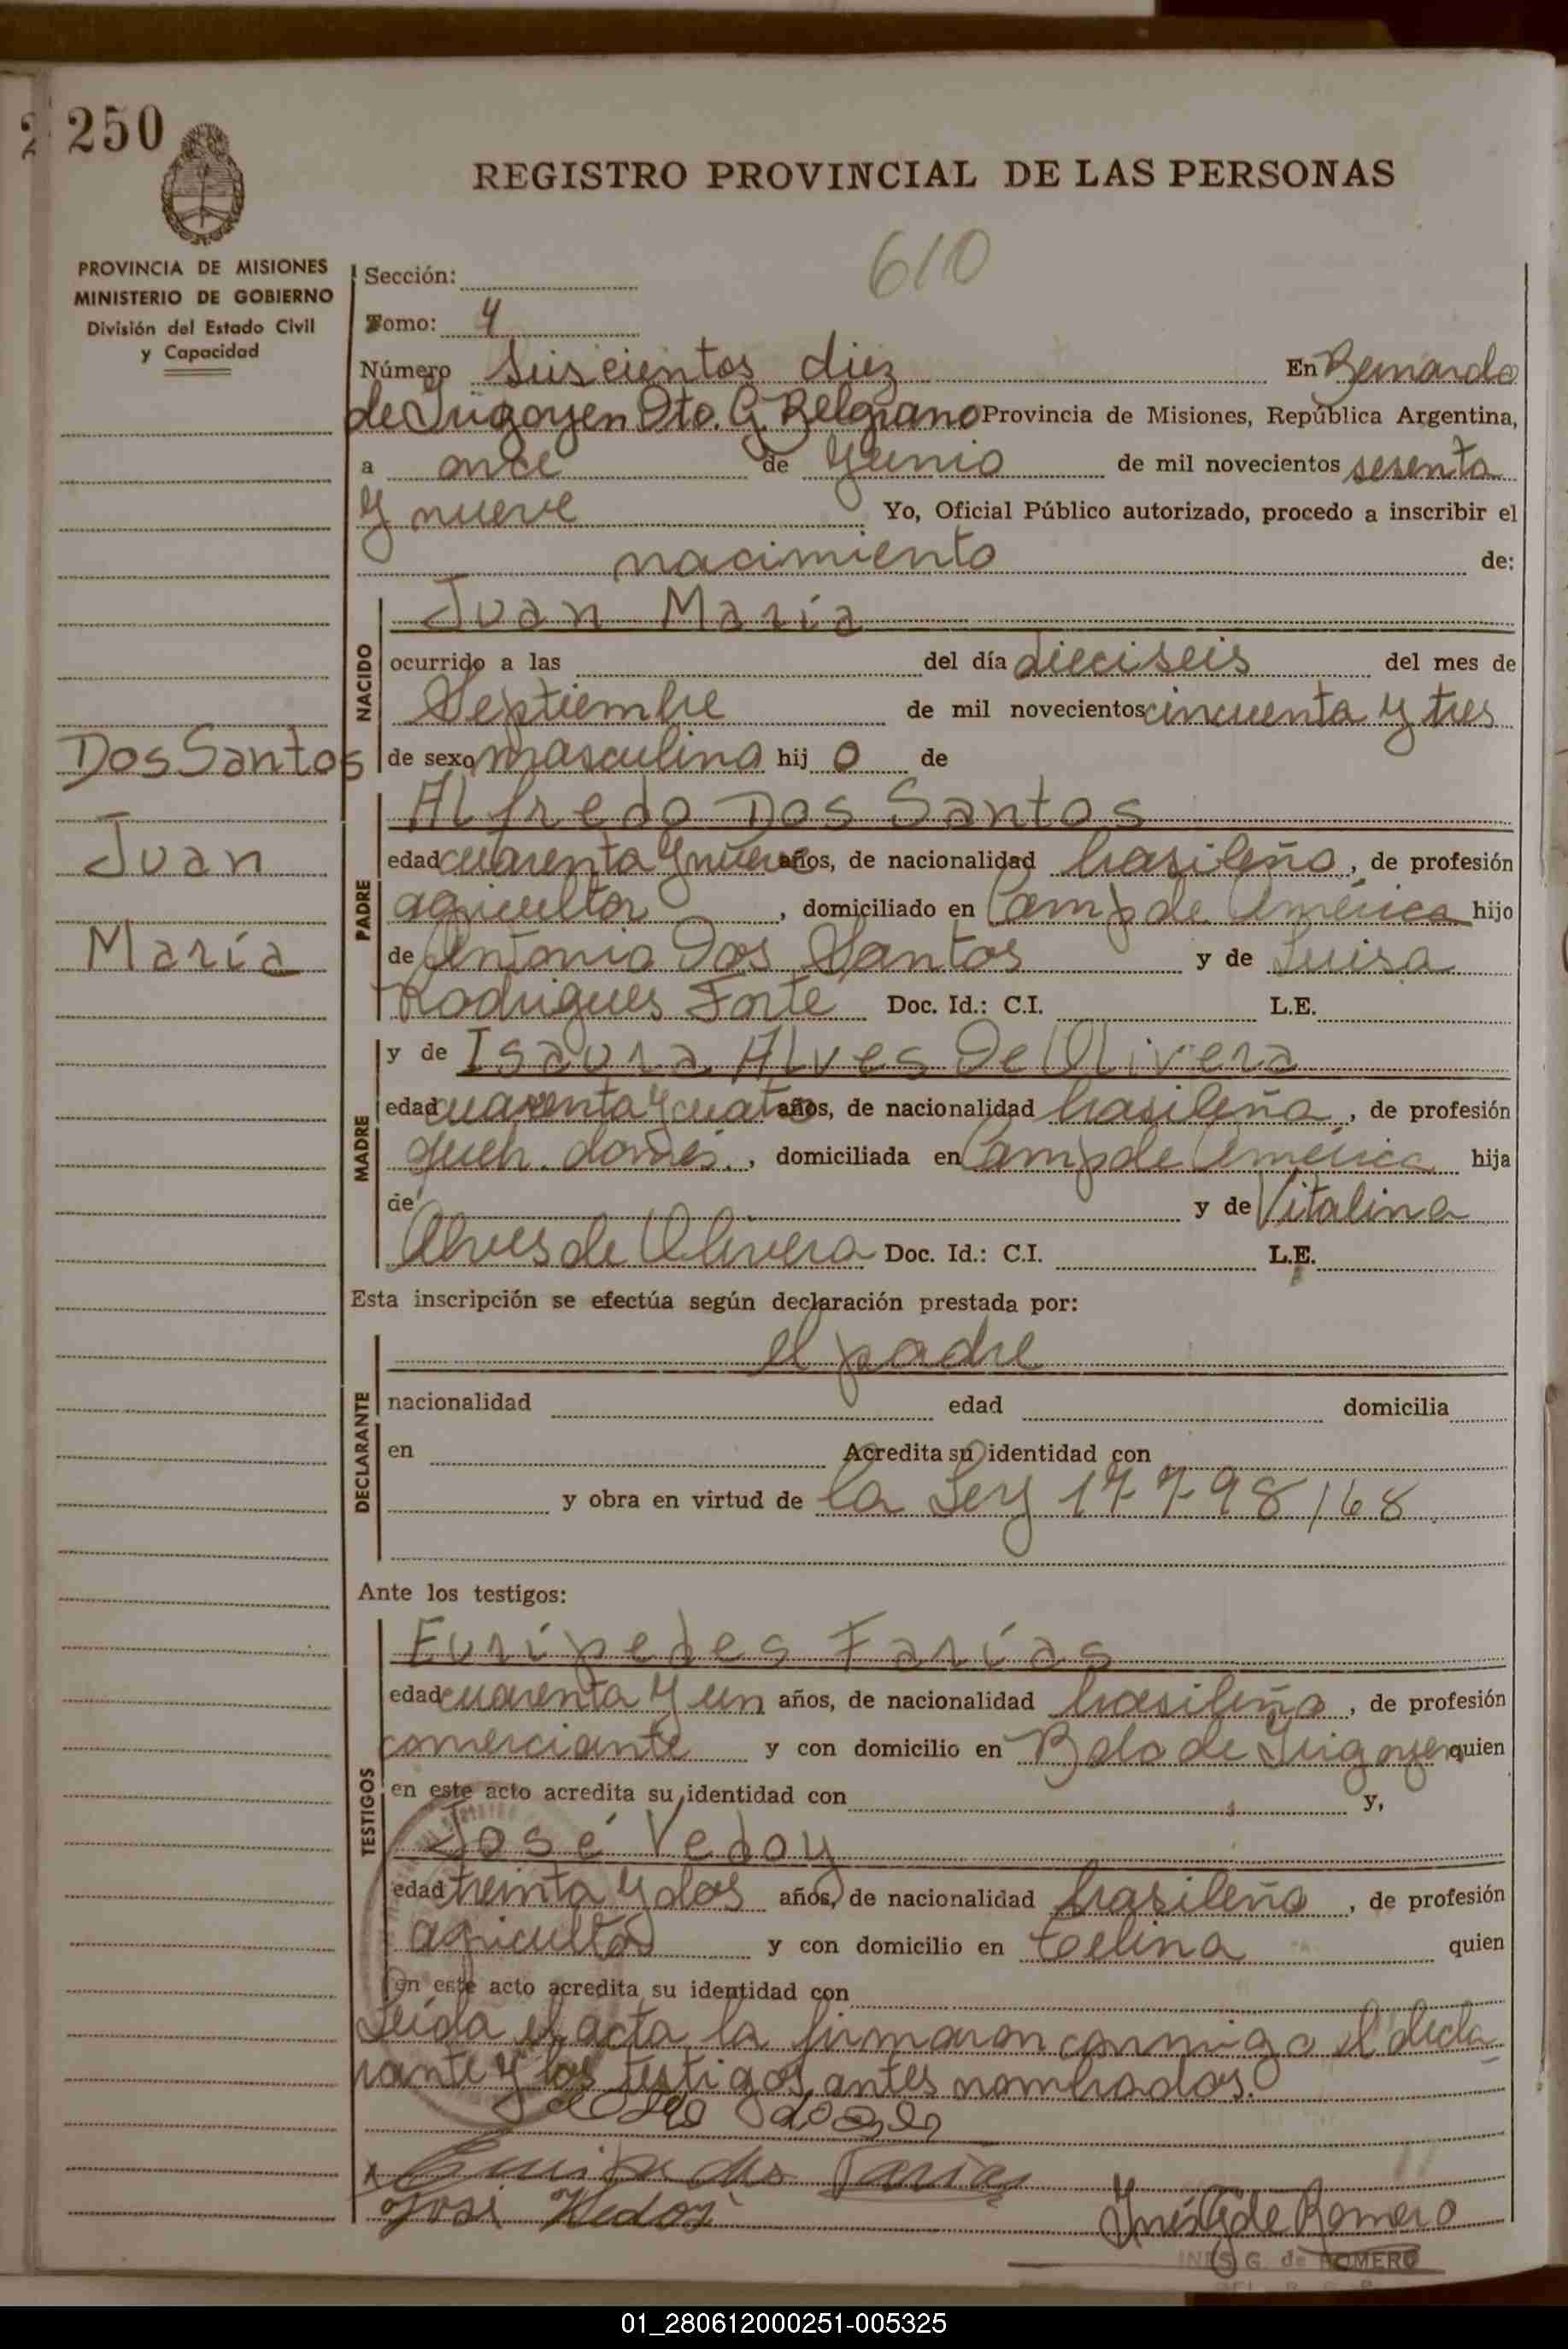 250
REGISTRO PROVINCIAL DE LAS PERSONAS
610
PROVINCIA DE MISIONES
MINISTERIO DE GOBIERNO
División del Estado Civil
y Capacidad
Sección:
Tomo: 4
Número Seiscientos diez En Bernardo
de Irigoyen Dto. G. Belgrano Provincia de Misiones, República Argentina,
a once de Junio de mil novecientos sesenta
y nueve Yo, Oficial Público autorizado, procedo a inscribir el
nacimiento de:
NACIDO
Juan María
ocurrido a las del día dieciseis del mes de
Septiembre de mil novecientos cincuenta y tres
de sexo masculino hij o de
Dos Santos
Juan
María
PADRE
Alfredo Dos Santos
edad cuarenta y nueve años, de nacionalidad brasileña, de profesión
agricultor, domiciliado en Camp de América hijo
de Antonio Dos Santos y de Luisa
Rodrigues Forte Doc. Id.: C.I. L.E.
MADRE
y de Isaura Alves De Olivera
edad cuarenta y cuatro años, de nacionalidad brasileña, de profesión
queh. domés., domiciliada en Camp de América hija
de y de Vitalina
Alves de Olivera Doc. Id.: C.I. L.E.
Esta inscripción se efectúa según declaración prestada por:
DECLARANTE
el padre
nacionalidad edad domicilia
en Acredita su identidad con
y obra en virtud de la Ley 17798/68.
Ante los testigos:
TESTIGOS
Eurípedes Farías
edad cuarenta y un años, de nacionalidad brasileña, de profesión
comerciante y con domicilio en Bdo de Irigoyen quien
en este acto acredita su identidad con y,
José Vedoy
edad treinta y dos años, de nacionalidad brasileña, de profesión
agricultor y con domicilio en Celina quien
en este acto acredita su identidad con
Leída el acta la firmaron conmigo el decla
rante y los testigos antes nombrados.
José Vedoy
Inés G de Romero
INES G. de ROMERO
01_280612000251-005325